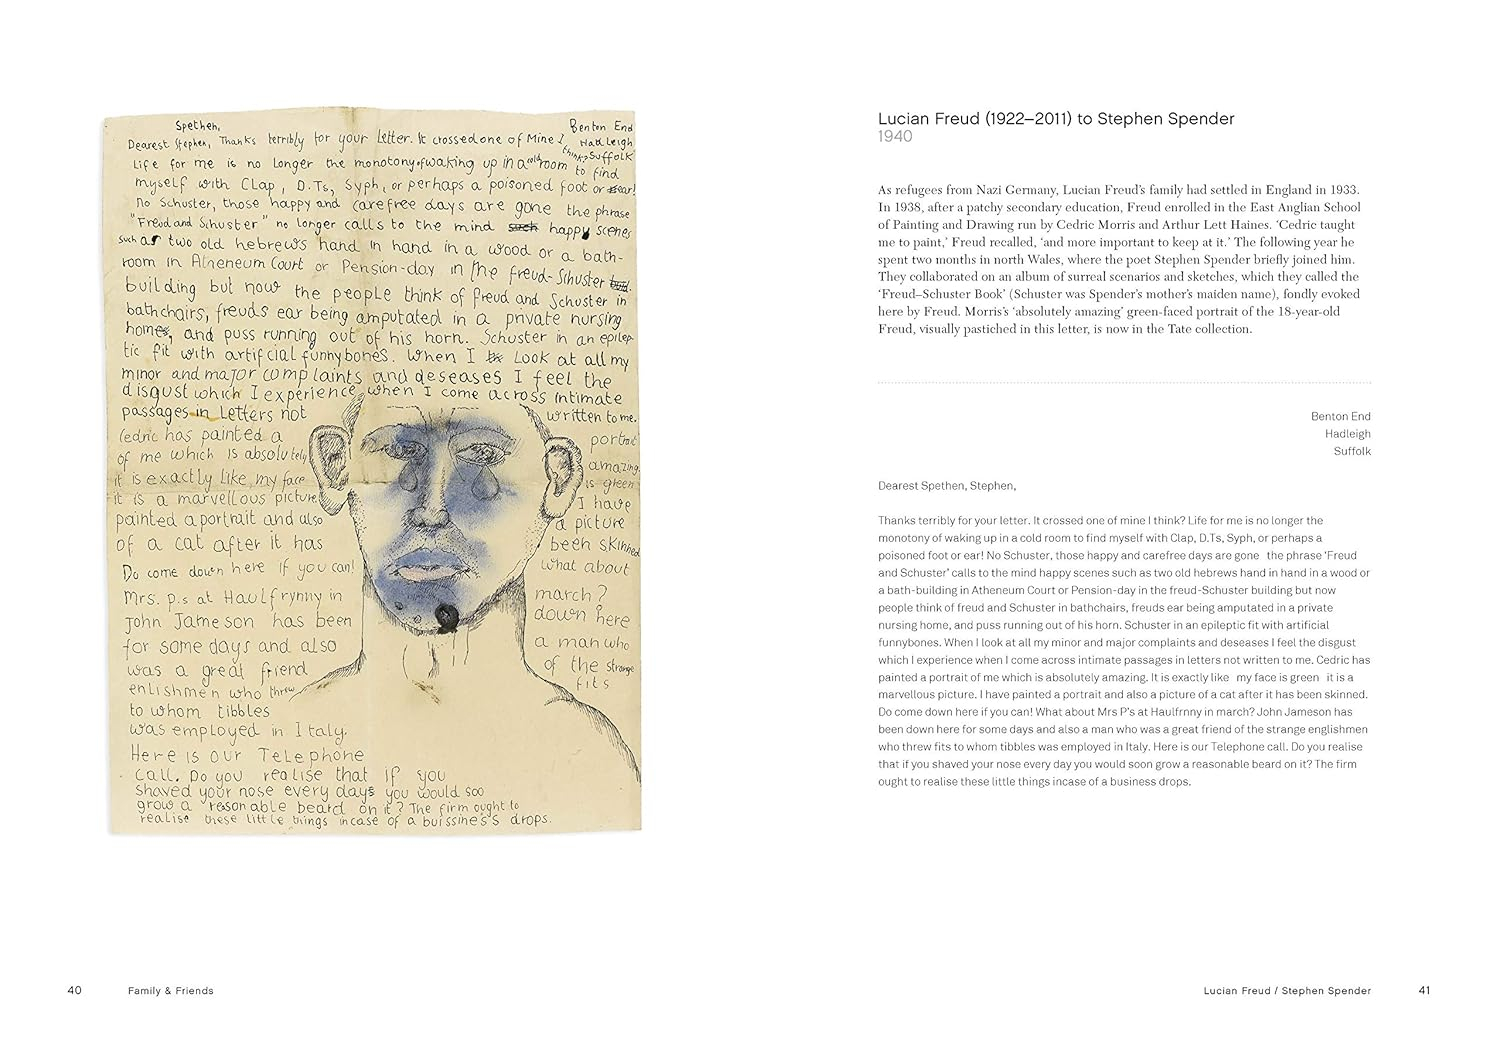 Spethen,
Dearest Stephen, Thanks terribly for your letter. It crossed one of Mine I think?
Benton End
Hadleigh
Suffolk
Life for me is no longer the monotony of waking up in a cold room to find
myself with Clap, D.Ts, Syph, or perhaps a poisoned foot or ear!
No Schuster, those happy and carefree days are gone the phrase
"Freud and Schuster" no longer calls to the mind happy scenes
such as two old hebrews hand in hand in a wood or a bath-
room in Atheneum Court or Pension-day in the freud-Schuster
building but now the people think of freud and Schuster in
bathchairs, freuds ear being amputated in a private nursing
home, and puss running out of his horn. Schuster in an epilep-
tic fit with artificial funnybones. When I Look at all my
minor and major complaints and deseases I feel the
disgust which I experience when I come across intimate
passages in Letters not written to me.
Cedric has painted a portrait
of me which is absolutely amazing.
it is exactly like my face is green
it is a marvellous picture I have
painted a portrait and also a picture
of a cat after it has been skinned
Do come down here if you can! what about
Mrs. p.s at Haulfrynny in march?
John Jameson has been down here
for some days and also a man who
was a great friend of the strange
enlishmen who threw fits
to whom tibbles
was employed in Italy.
Here is our Telephone
call. Do you realise that if you
shaved your nose every days you would soo
grow a reasonable beard on it? The firm ought to
realise these little things incase of a buissiness drops.
40 Family & Friends
Lucian Freud (1922–2011) to Stephen Spender
1940
As refugees from Nazi Germany, Lucian Freud's family had settled in England in 1933.
In 1938, after a patchy secondary education, Freud enrolled in the East Anglian School
of Painting and Drawing run by Cedric Morris and Arthur Lett Haines. 'Cedric taught
me to paint,' Freud recalled, 'and more important to keep at it.' The following year he
spent two months in north Wales, where the poet Stephen Spender briefly joined him.
They collaborated on an album of surreal scenarios and sketches, which they called the
'Freud–Schuster Book' (Schuster was Spender's mother's maiden name), fondly evoked
here by Freud. Morris's 'absolutely amazing' green-faced portrait of the 18-year-old
Freud, visually pastiched in this letter, is now in the Tate collection.
Benton End
Hadleigh
Suffolk
Dearest Spethen, Stephen,
Thanks terribly for your letter. It crossed one of mine I think? Life for me is no longer the
monotony of waking up in a cold room to find myself with Clap, D.Ts, Syph, or perhaps a
poisoned foot or ear! No Schuster, those happy and carefree days are gone the phrase 'Freud
and Schuster' calls to the mind happy scenes such as two old hebrews hand in hand in a wood or
a bath-building in Atheneum Court or Pension-day in the freud-Schuster building but now
people think of freud and Schuster in bathchairs, freuds ear being amputated in a private
nursing home, and puss running out of his horn. Schuster in an epileptic fit with artificial
funnybones. When I look at all my minor and major complaints and deseases I feel the disgust
which I experience when I come across intimate passages in letters not written to me. Cedric has
painted a portrait of me which is absolutely amazing. It is exactly like my face is green it is a
marvellous picture. I have painted a portrait and also a picture of a cat after it has been skinned.
Do come down here if you can! What about Mrs P's at Haulfrnny in march? John Jameson has
been down here for some days and also a man who was a great friend of the strange englishmen
who threw fits to whom tibbles was employed in Italy. Here is our Telephone call. Do you realise
that if you shaved your nose every day you would soon grow a reasonable beard on it? The firm
ought to realise these little things incase of a business drops.
Lucian Freud / Stephen Spender 41